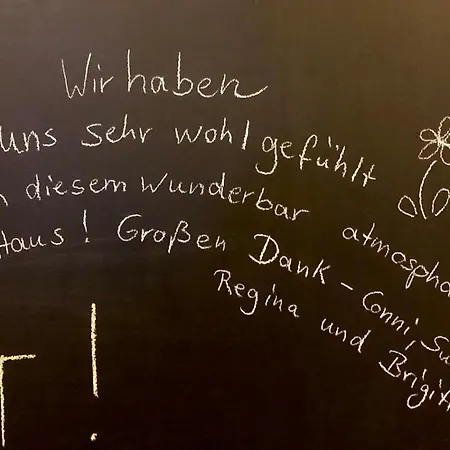 Wir haben
uns sehr wohl gefühlt
diesem wunderbar atmosphä
Haus! Großen Dank - Conni, Su
Regina und Brigitt
!